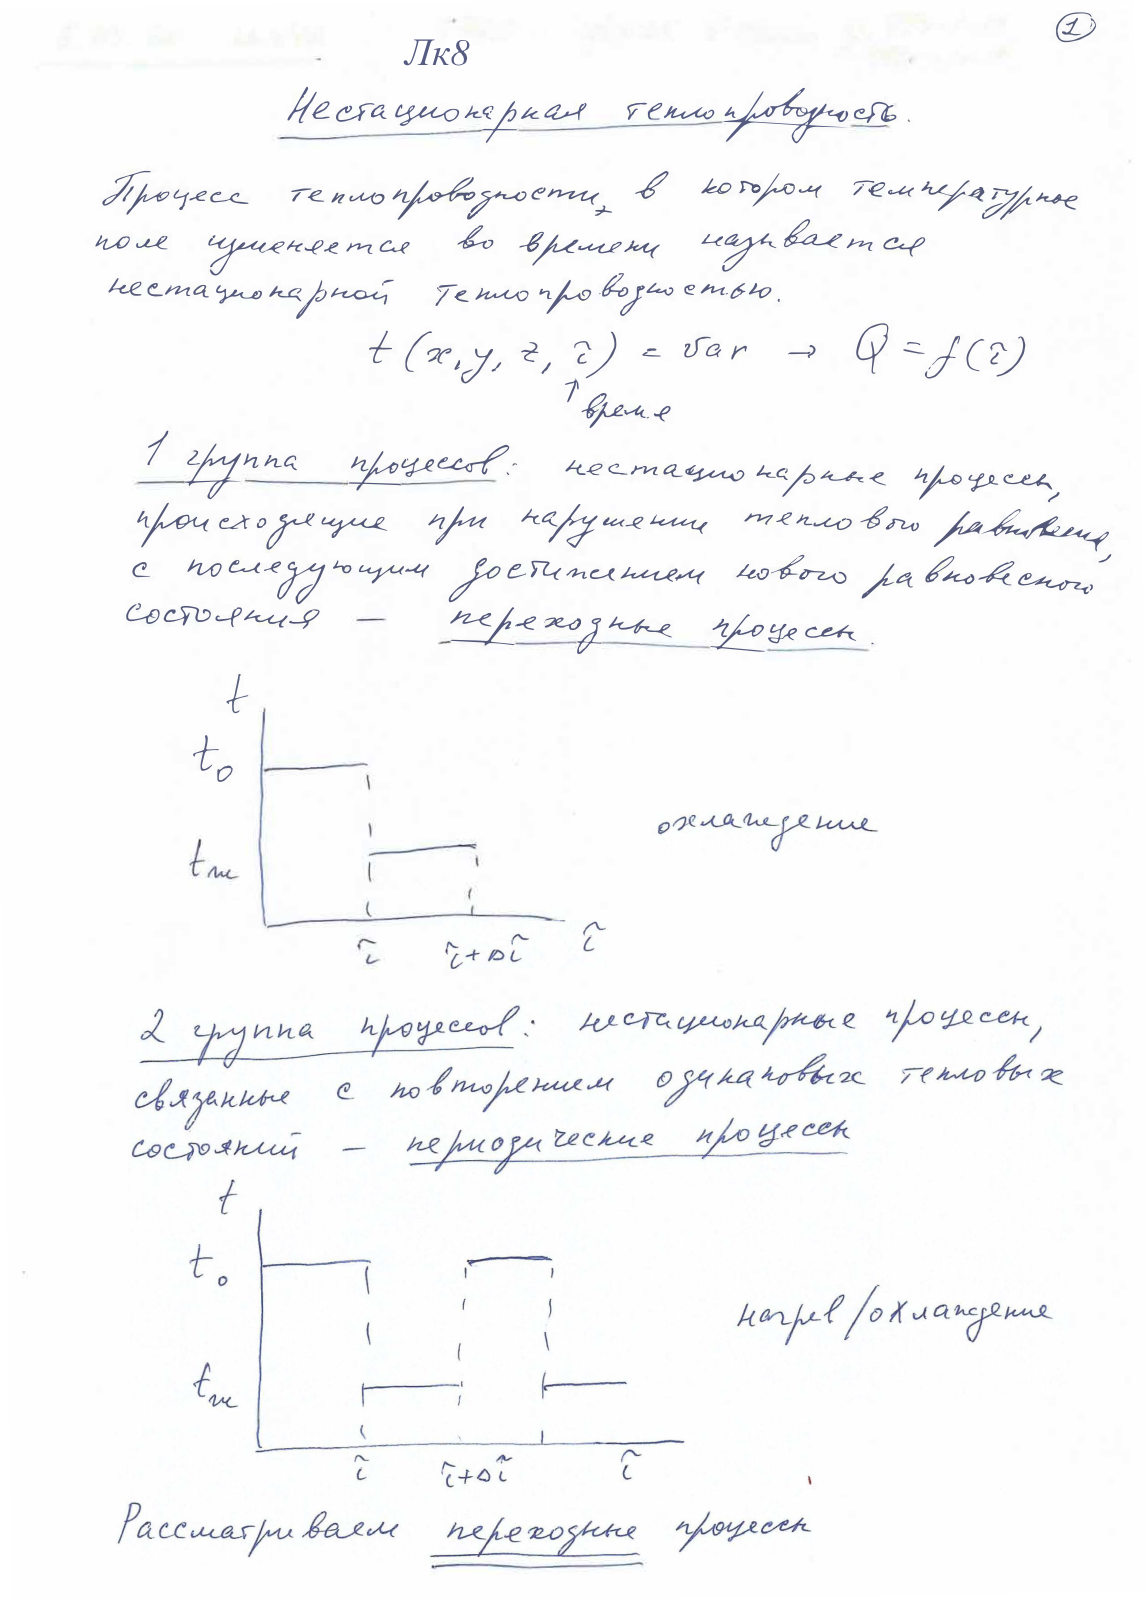 1
Лк8
Нестационарная теплопроводность.
Процесс теплопроводности, в котором температурное
поле изменяется во времени называется
нестационарной теплопроводностью.
t (x, y, z, τ) = var → Q = f(τ)
↑ время
1 группа процессов: нестационарные процессы,
происходящие при нарушении теплового равновесия,
с последующим достижением нового равновесного
состояния — переходные процессы.
t
t₀
охлаждение
tж
τ τ+Δτ τ
2 группа процессов: нестационарные процессы,
связанные с повторением одинаковых тепловых
состояний — периодические процессы
t
t₀
нагрев/охлаждение
tж
τ τ+Δτ τ
Рассматриваем переходные процессы